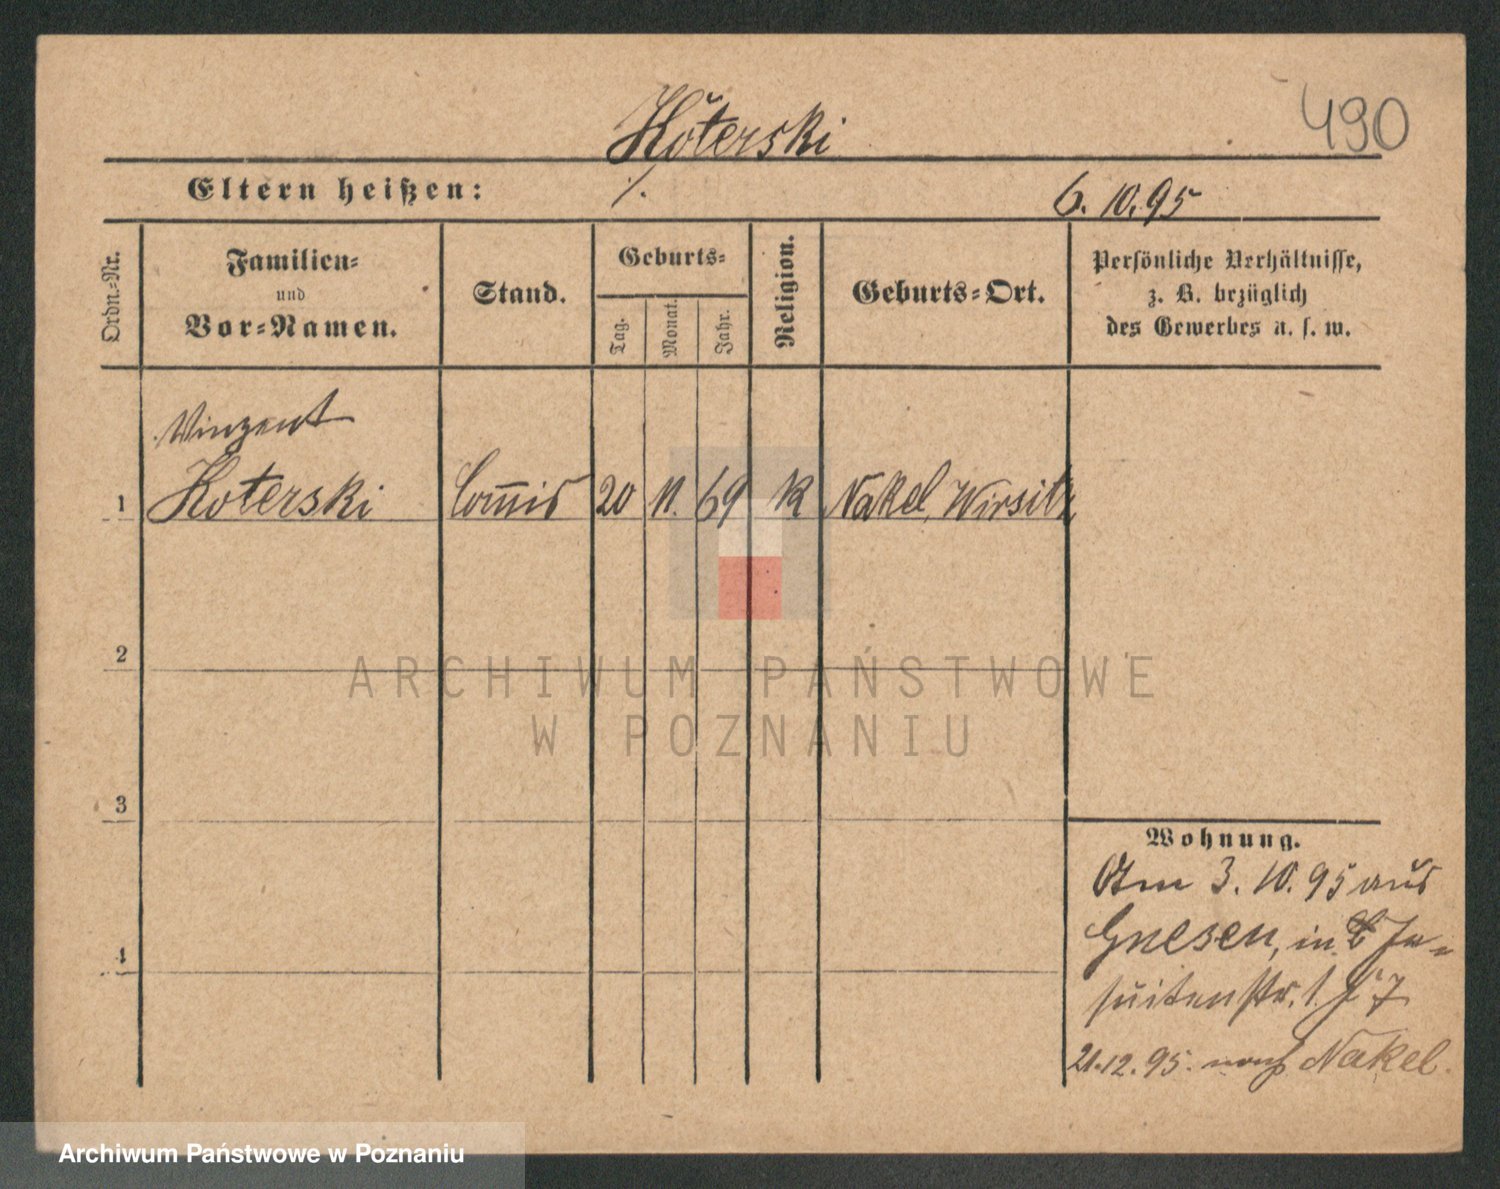 Koterski
490
Eltern heißen:
./.
6. 10. 95
Ordn.-Nr.
Familien-
und
Vor-Namen.
Stand.
Geburts-
Tag.
Monat.
Jahr.
Religion.
Geburts-Ort.
Persönliche Verhältnisse,
z. B. bezüglich
des Gewerbes u. s. w.
Vinzent
1 Koterski Com̅is 20 11. 69 k Nakel, Wirsitz
2
3
4
Wohnung.
Am 3. 10. 95 aus
Gnesen, in Je-
suitenstr. 1. 7
21.12.95. nach Nakel.
ARCHIWUM PAŃSTWOWE
W POZNANIU
Archiwum Państwowe w Poznaniu